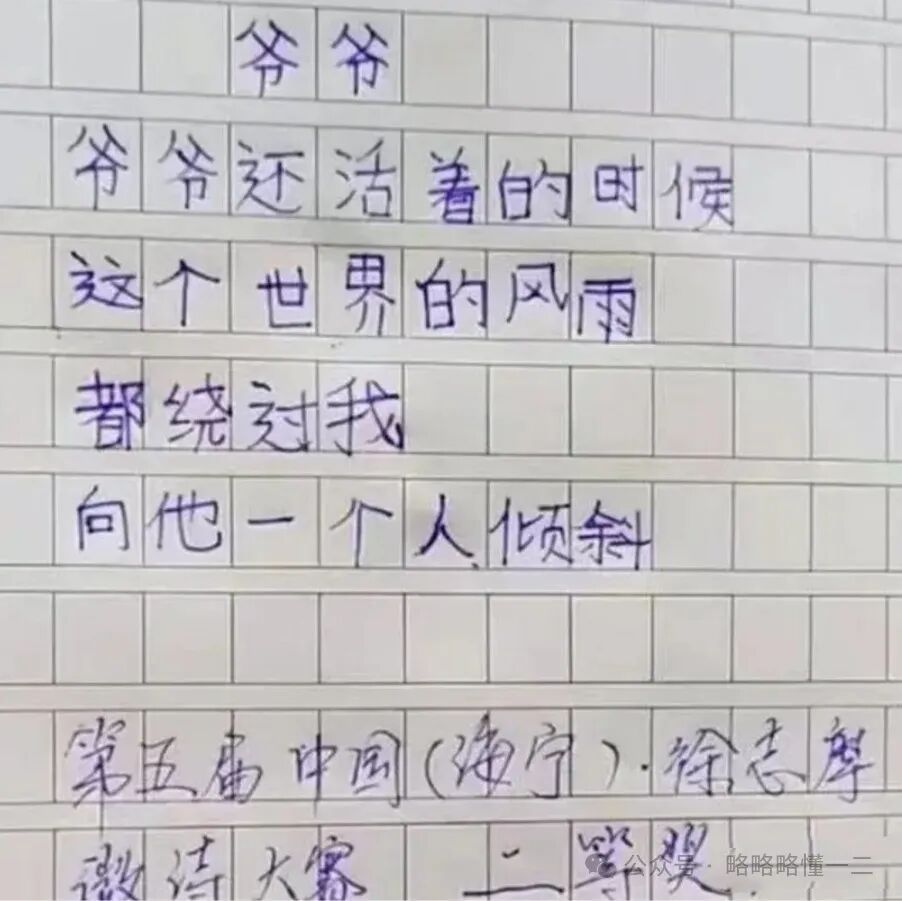 爷爷
爷爷还活着的时候
这个世界的风雨
都绕过我
向他一个人倾斜
第五届中国(海宁)·徐志摩
微诗大赛 二等奖
公众号·略略略懂一二